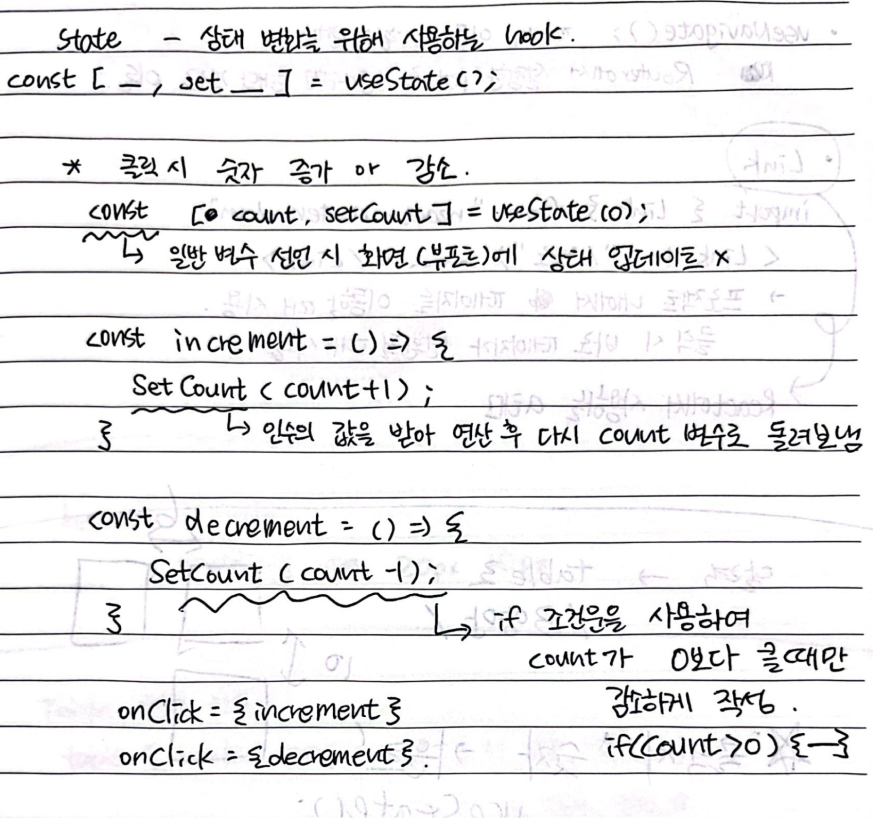 state - 상태 변화를 위해 사용하는 hook.
const [ _ , set _ ] = useState();
* 클릭 시 숫자 증가 or 감소.
const [ count, setCount ] = useState(0);
↳ 일반 변수 선언 시 화면(뷰포트)에 상태 업데이트 x
const increment = () => {
SetCount (count+1);
} ↳ 인수의 값을 받아 연산 후 다시 count 변수로 돌려보냄
const decrement = () => {
SetCount (count -1);
} ↳ if 조건문을 사용하여
count가 0보다 클때만
onClick = {increment} 감소하게 작성.
onClick = {decrement}. if(count>0) {—}